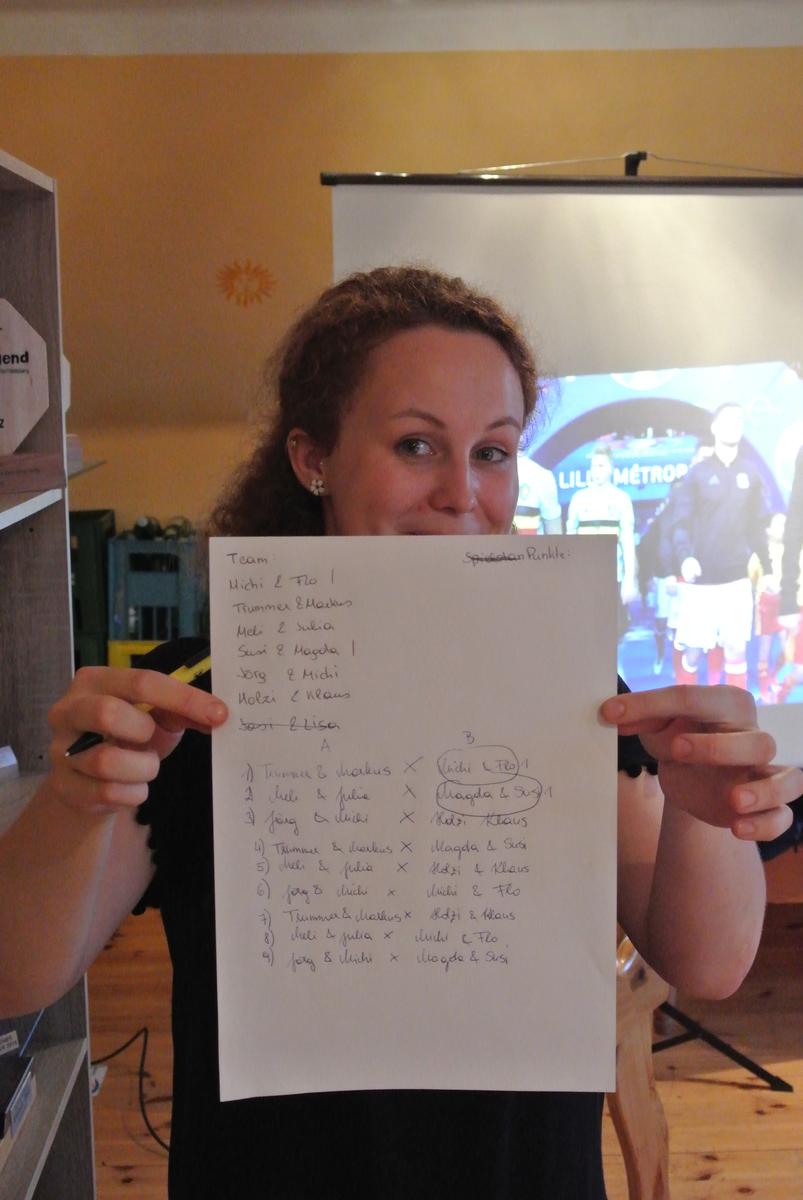 gend
z
LILLE MÉTROP
Team: Punkte:
Michi & Flo |
Trummer & Markus
Meli & Julia
Susi & Magda |
Jörg & Michi
Holzi & Klaus
Sasi & Lisa
A B
1) Trummer & Markus × Michi & Flo 1
2) Meli & Julia × Magda & Susi 1
3) Jörg & Michi × Holzi Klaus
4) Trummer & Markus × Magda & Susi
5) Meli & Julia × Holzi & Klaus
6) Jörg & Michi × Michi & Flo
7) Trummer & Markus × Holzi & Klaus
8) Meli & Julia × Michi & Flo
9) Jörg & Michi × Magda & Susi